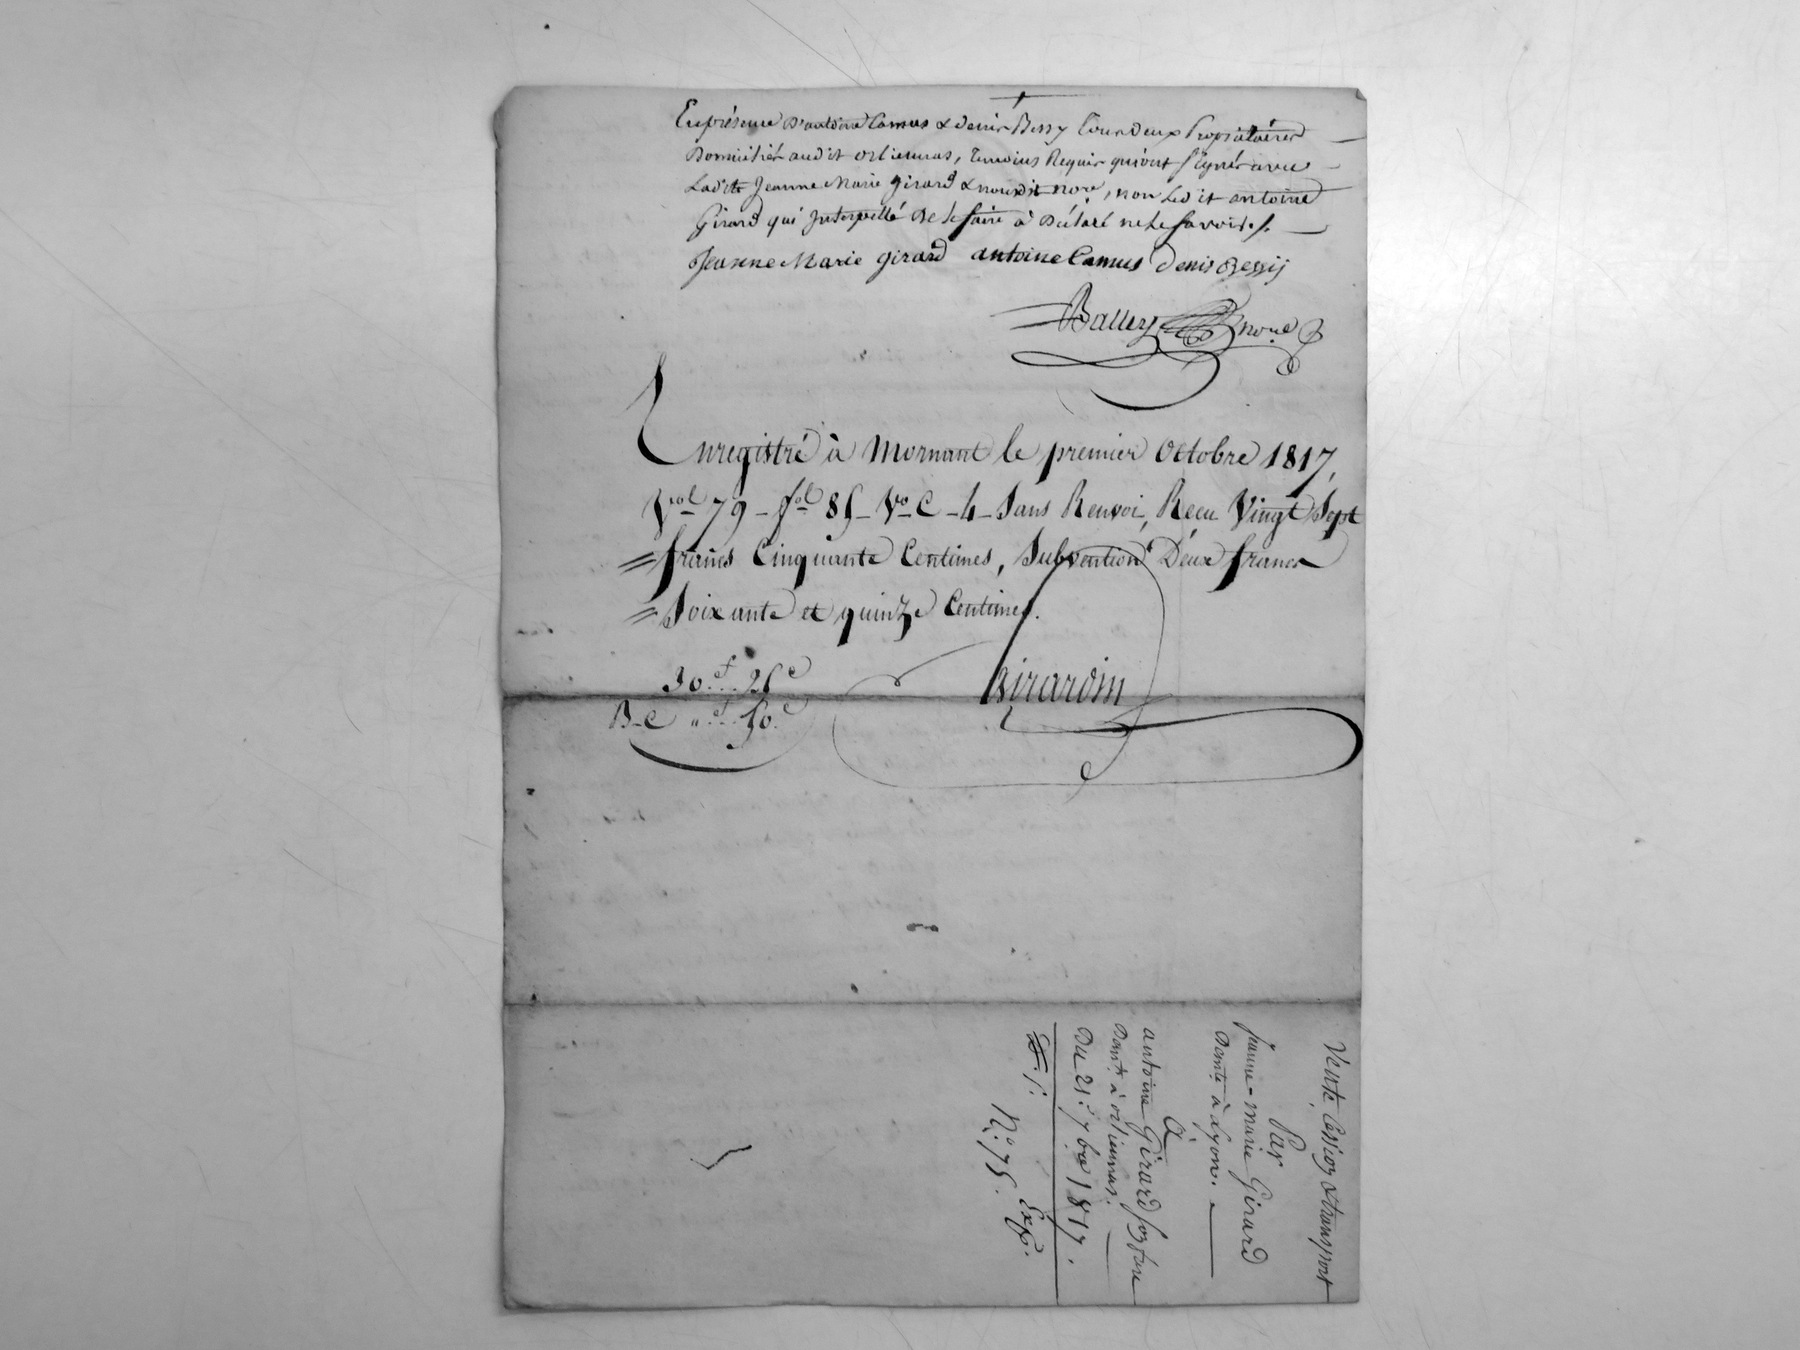 En présence d'antoine Camus & denis Bessy tous deux Propriétaires
Domiciliés audit orlienas, temoins Requis qui ont signés avec
Ladite Jeanne Marie girard & nousdit nore, non Ledit antoine
Girard qui interpellé De le faire à Déclaré ne le savoir./.
Jeanne Marie girard antoine Camus denis Bessij
Balley nore
Enregistré à Mornant le premier Octobre 1817,
Vol 79 - fol 85 - Vo C - 4 - Sans Renvoi, Recu Vingt Sept
francs Cinquante Centimes, Subvention Deux francs
Soixante et quinze Centimes.
30f 25c
B-C "f 50c
Girardin
Vente, Cession & transport
Par
Jeanne-marie Girard
Domte à Lyon.
à
antoine Girard son frere
Domt à orlienas.
Du 21: 7bre 1817.
Exp.
No. 75.